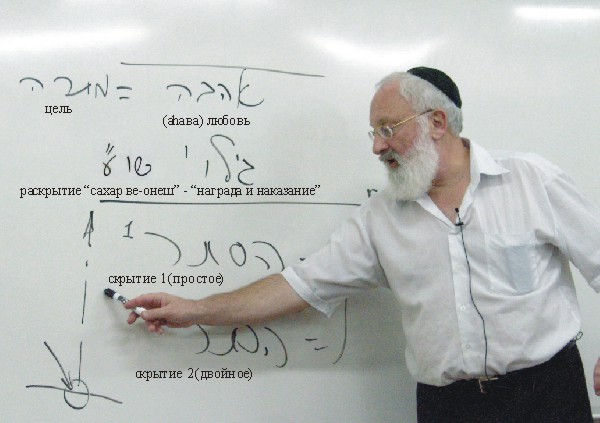 אהבה = מטרה
цель (аhава) любовь
גילוי שו"ע
раскрытие “сахар ве-онеш” - “награда и наказание”
הסתר 1
скрытие 1(простое)
הסתר
скрытие 2(двойное)